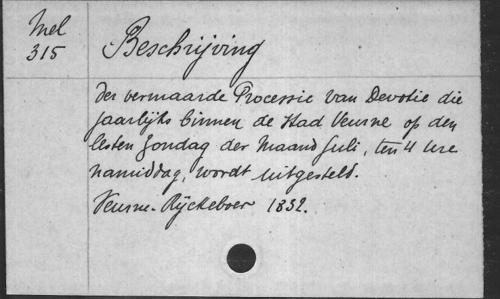 Mel
315
Beschrijving
der vermaarde Processie van Devotie die
jaarlijks binnen de stad Veurne op den
lesten Zondag der Maand Juli, ten 4 ure
namiddag, wordt uitgesteld.
Veurne-Ryckeboer 1832.